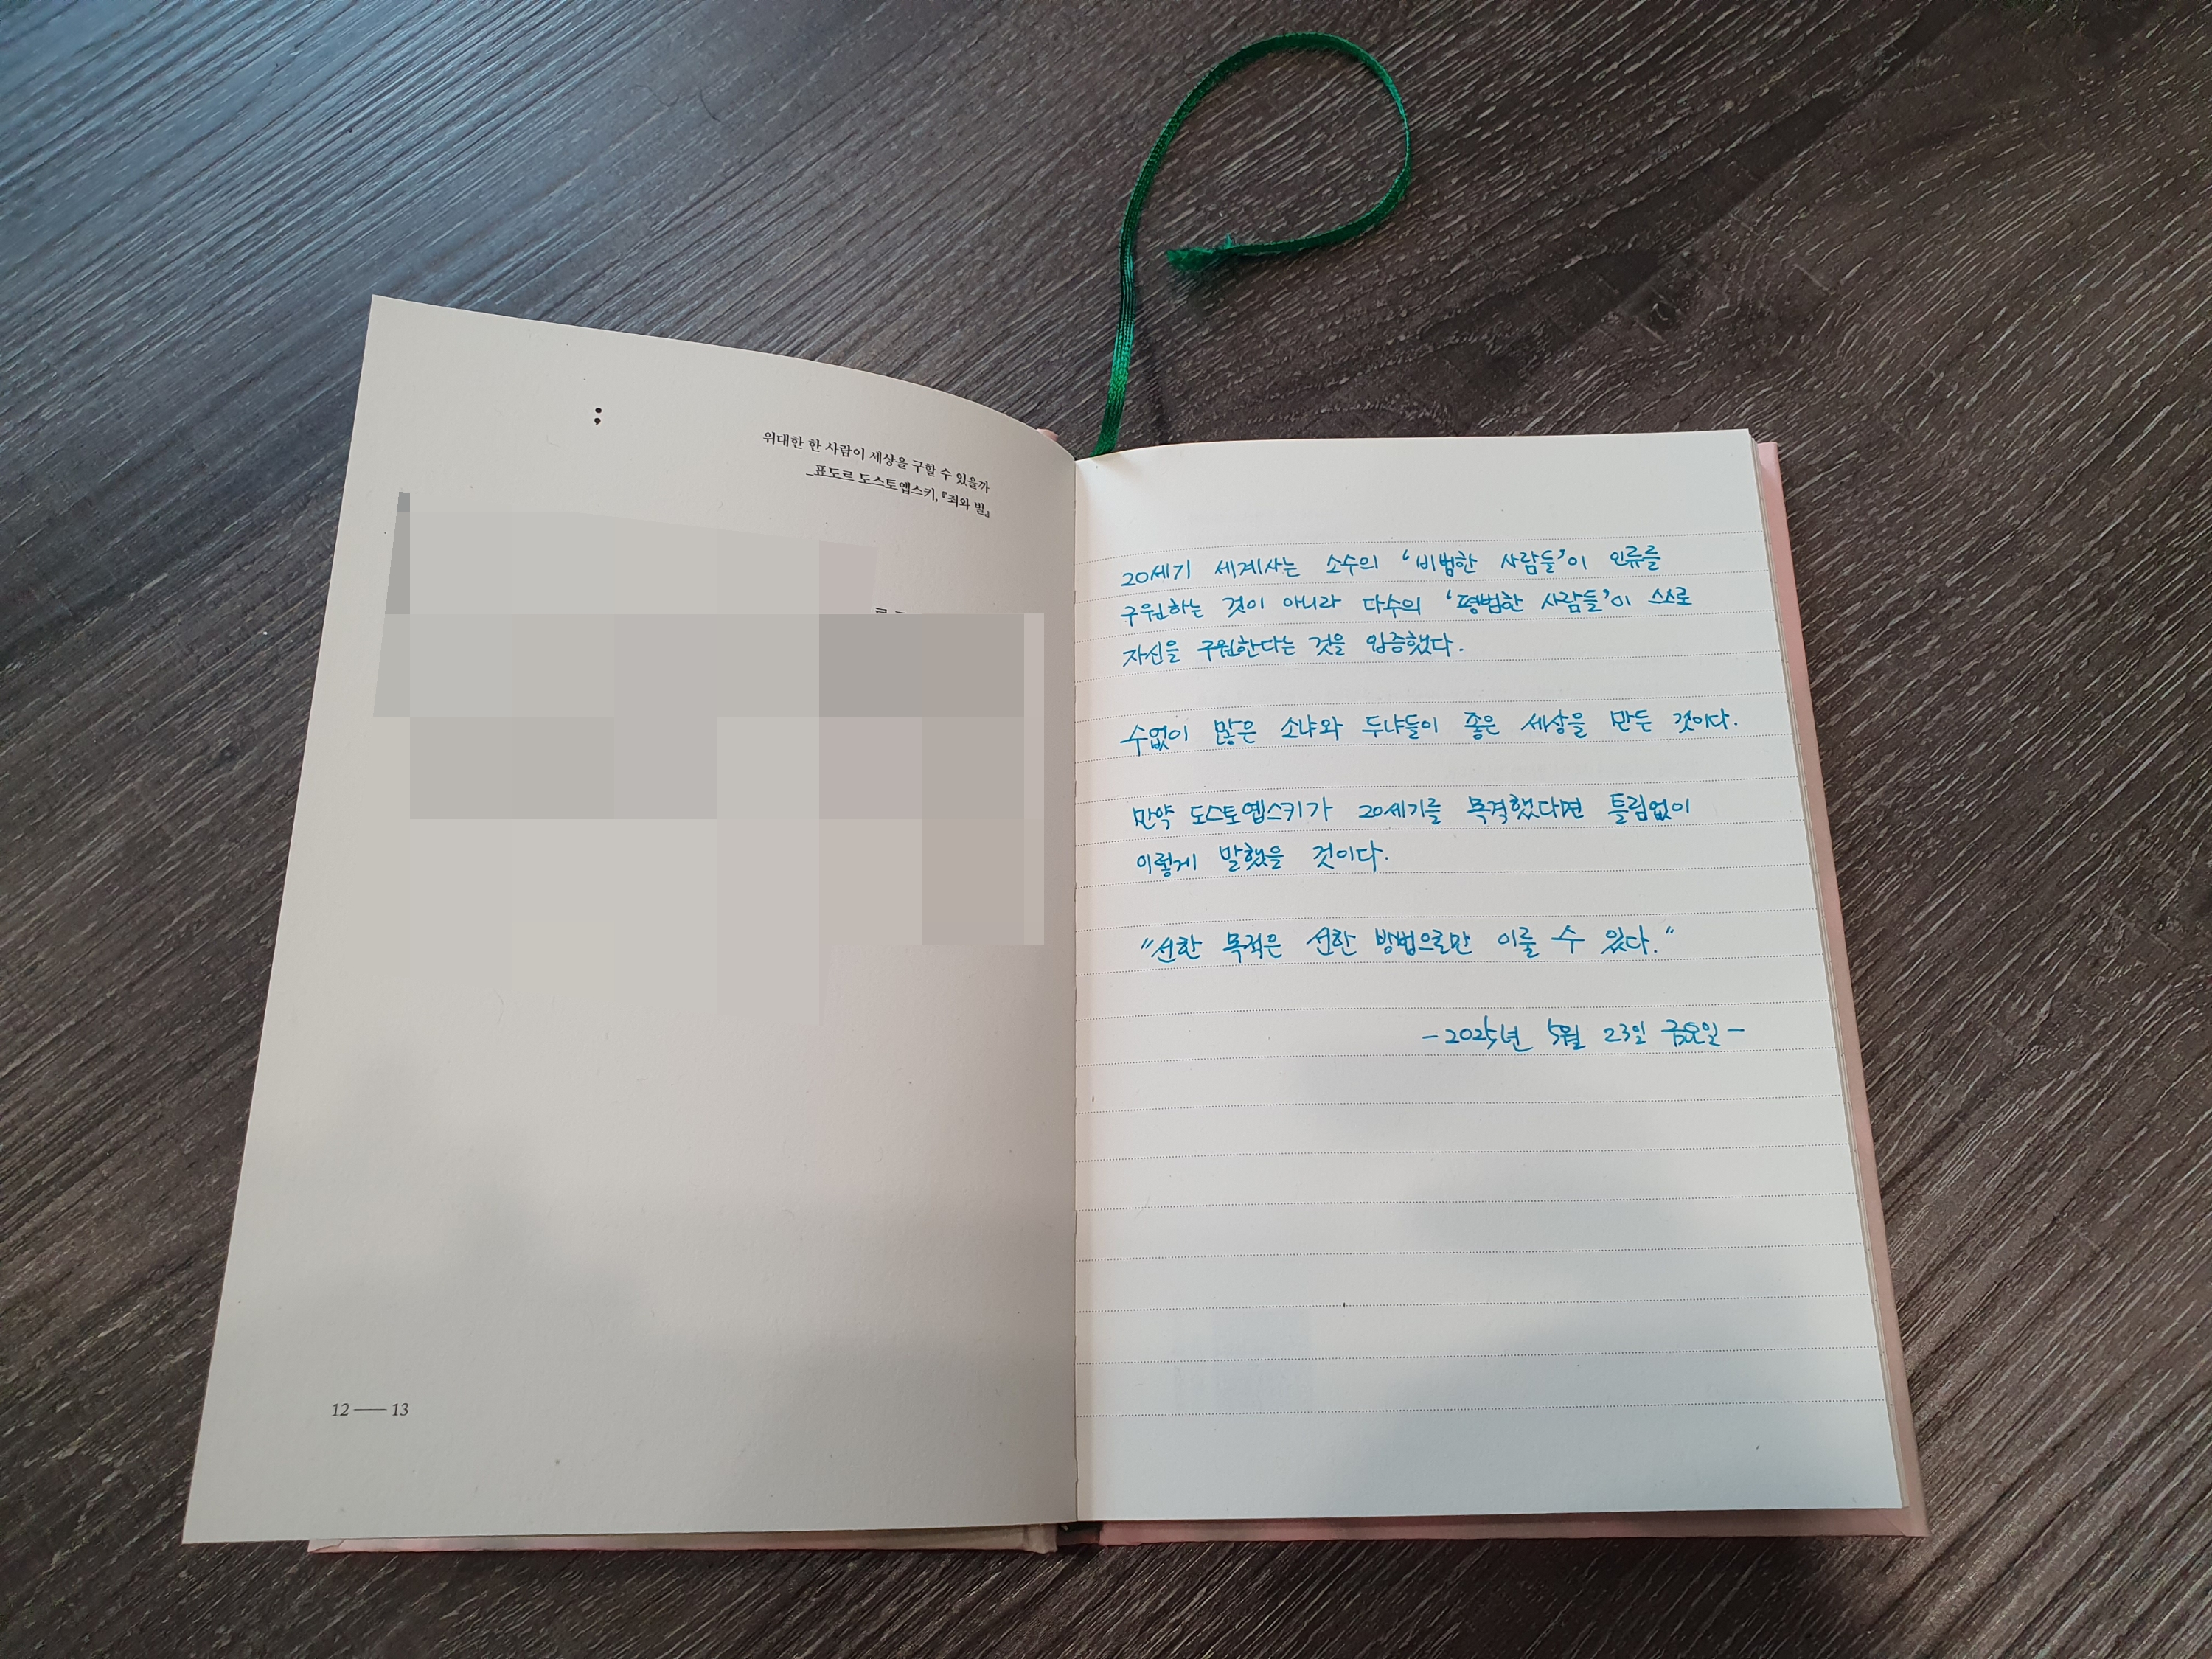 ;
위대한 한 사람이 세상을 구할 수 있을까
_표도르 도스토옙스키, 『죄와 벌』
12 — 13
20세기 세계사는 소수의 ‘비범한 사람들’이 인류를
구원하는 것이 아니라 다수의 ‘평범한 사람들’이 스스로
자신을 구원한다는 것을 입증했다.
수없이 많은 소냐와 두냐들이 좋은 세상을 만든 것이다.
만약 도스토옙스키가 20세기를 목격했다면 틀림없이
이렇게 말했을 것이다.
“선한 목적은 선한 방법으로만 이룰 수 있다.”
-2025년 5월 23일 금요일-